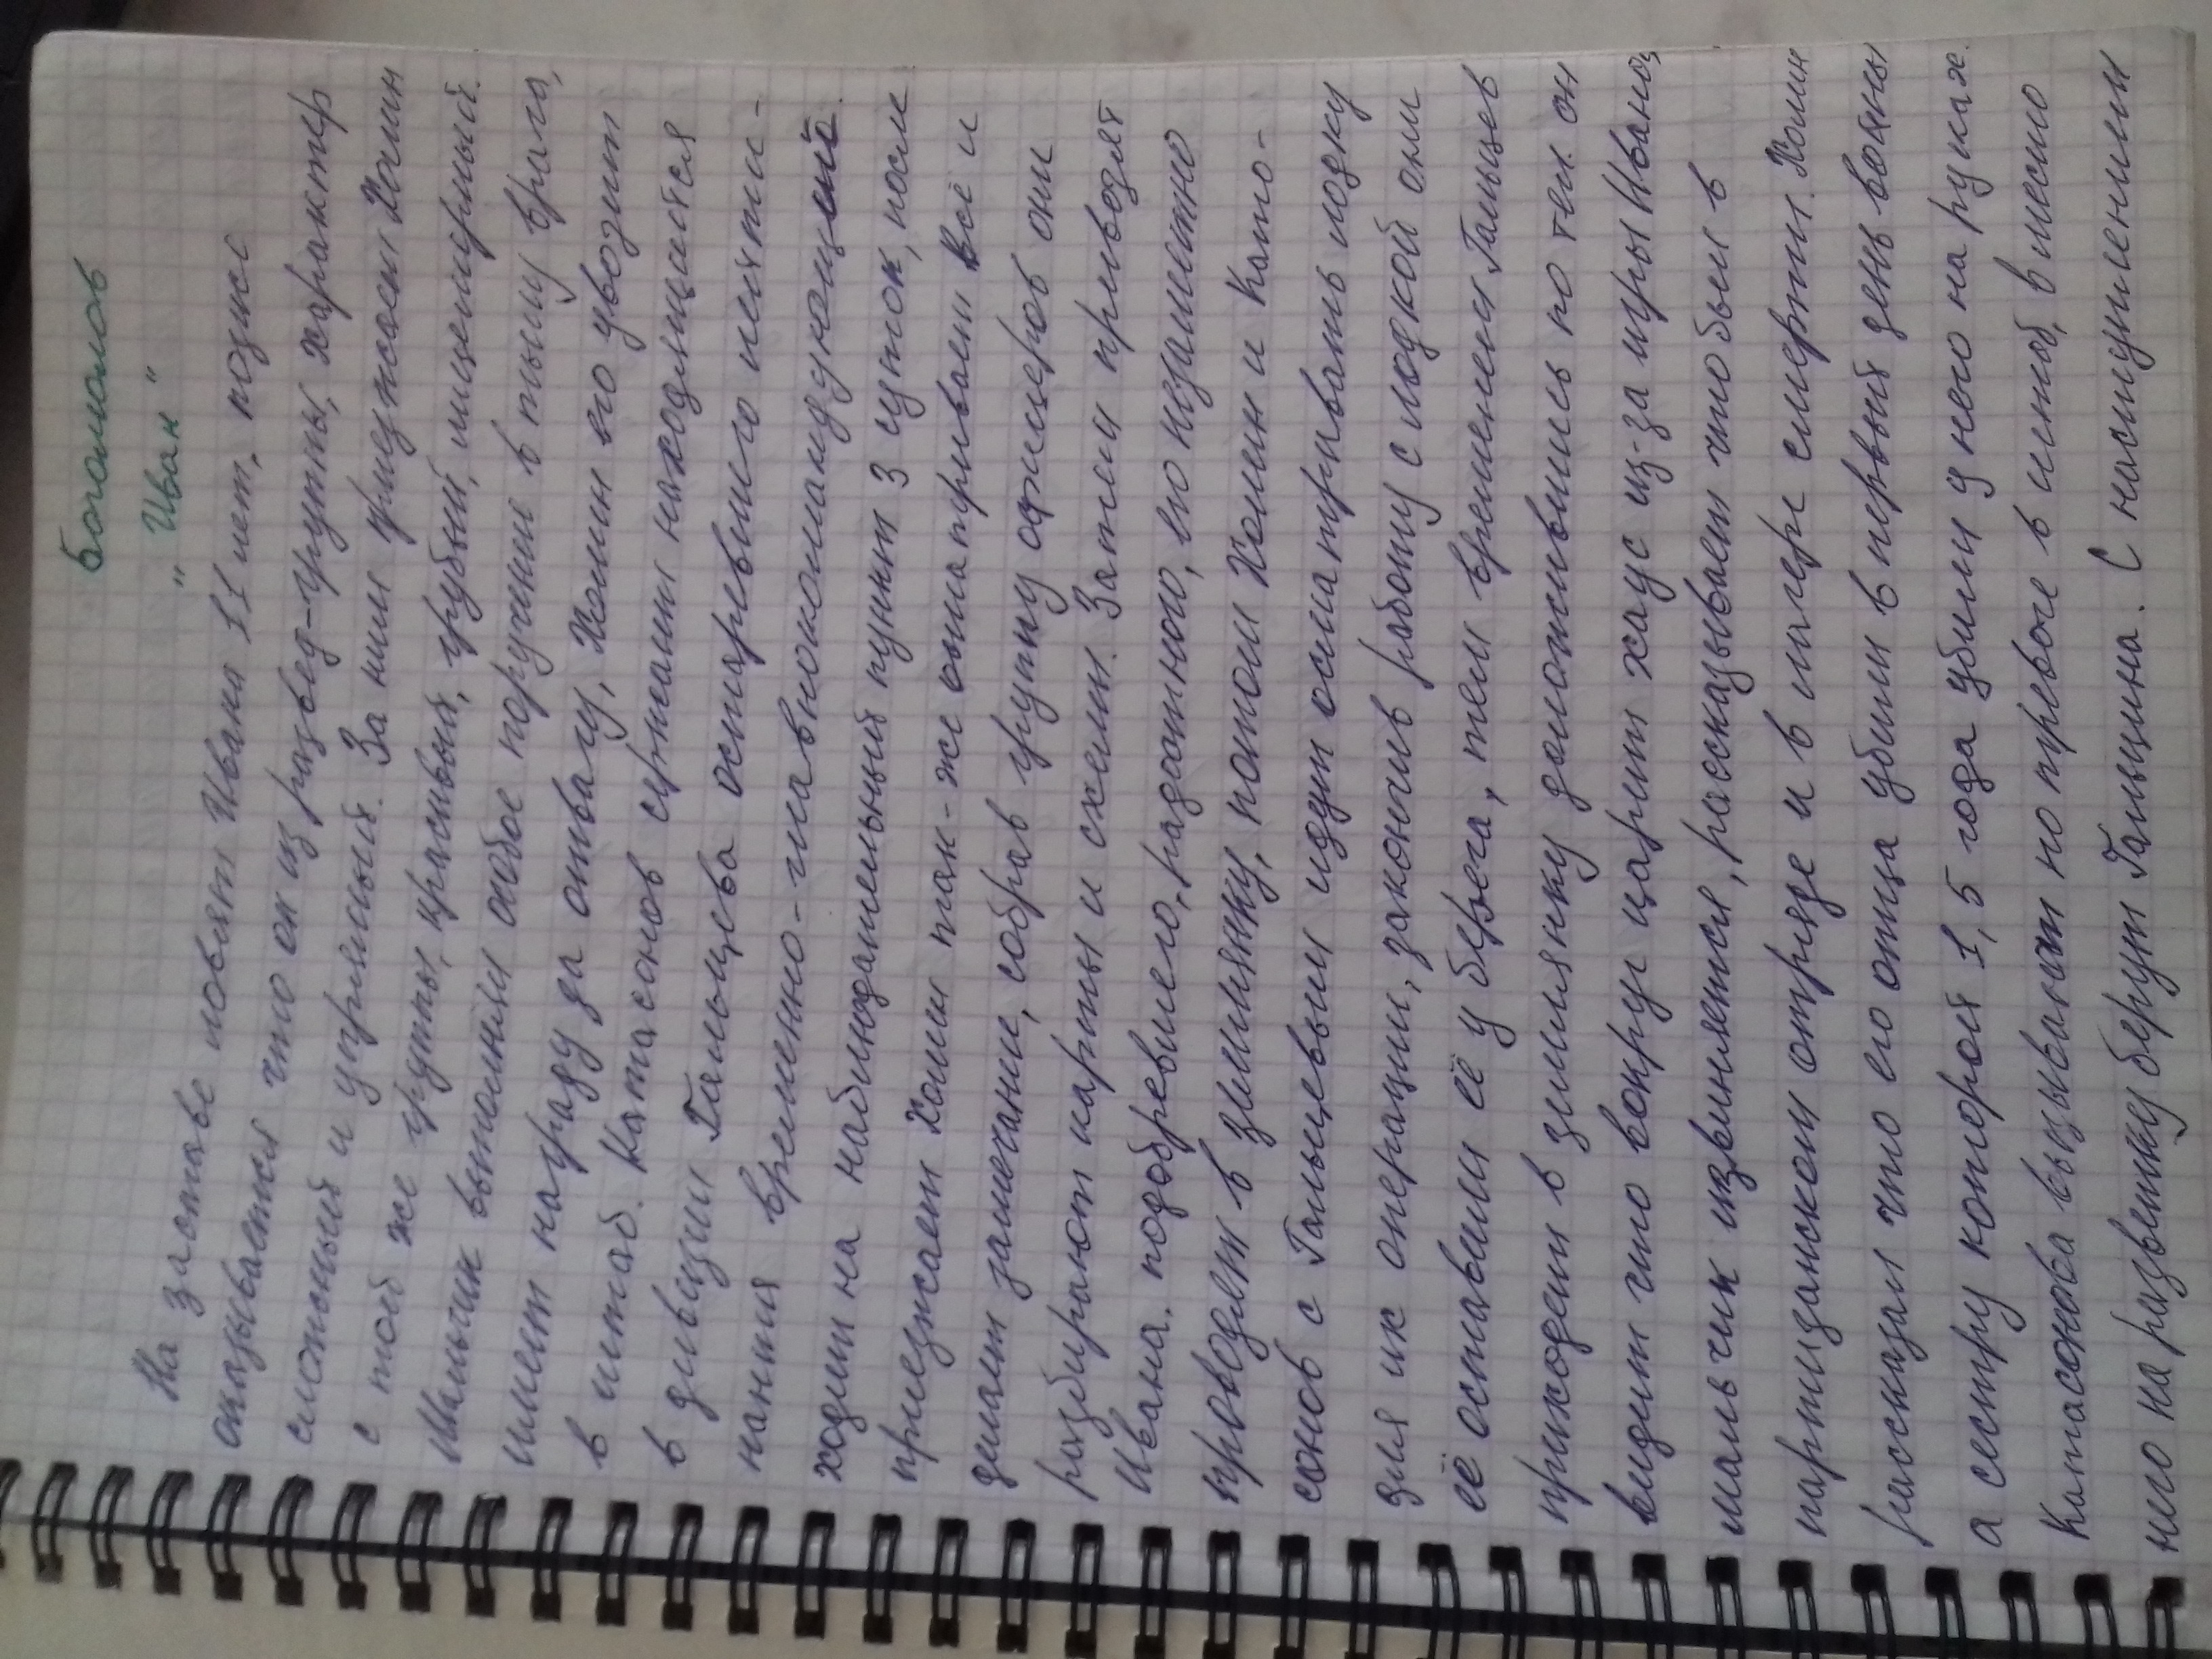 Богомолов
"Иван"
На заставе ловят Ивана 11 лет, позже
оказывается что он из развед-группы, характер
сложный и упрямый. За ним приезжает Холин
с той же группы, красивый, грубый, лицемерный.
Мальчик выполнял особое поручение в тылу врага,
имеет награду за отвагу, Холин его увозит
в штаб. Катасонов сержант находящийся
в дивизии Гальцева остаревшего лейте-
нанта временно-главнокомандующий.
ходит на наблюдательный пункт 3 суток, после
приезжает Холин так-же осматривает всё и
делает замечание, собрав группу офицеров они
разбирают карты и схемы. Затем привозят
Ивана. подобревшего, радостного, его незаметно
проводят в землянку, потом Холин и Ката-
сонов с Гальцевым идут осматривать лодку
для их операции, закончив работу с лодкой они
её оставили у берега, тем временем Гальцев
приходит в землянку доложившись по тел. он
видит что вокруг царит хаус из-за игры Ивана,
мальчик извиняется, рассказывает что был в
партизанском отряде и в лагере смерти. Холин
рассказал что его отца убили в первый день войны
а сестру которой 1,5 года убили у него на руках.
Катасонова вызывают по тревоге в штаб, вместо
него на разведку берут Гальцина. С наступлением